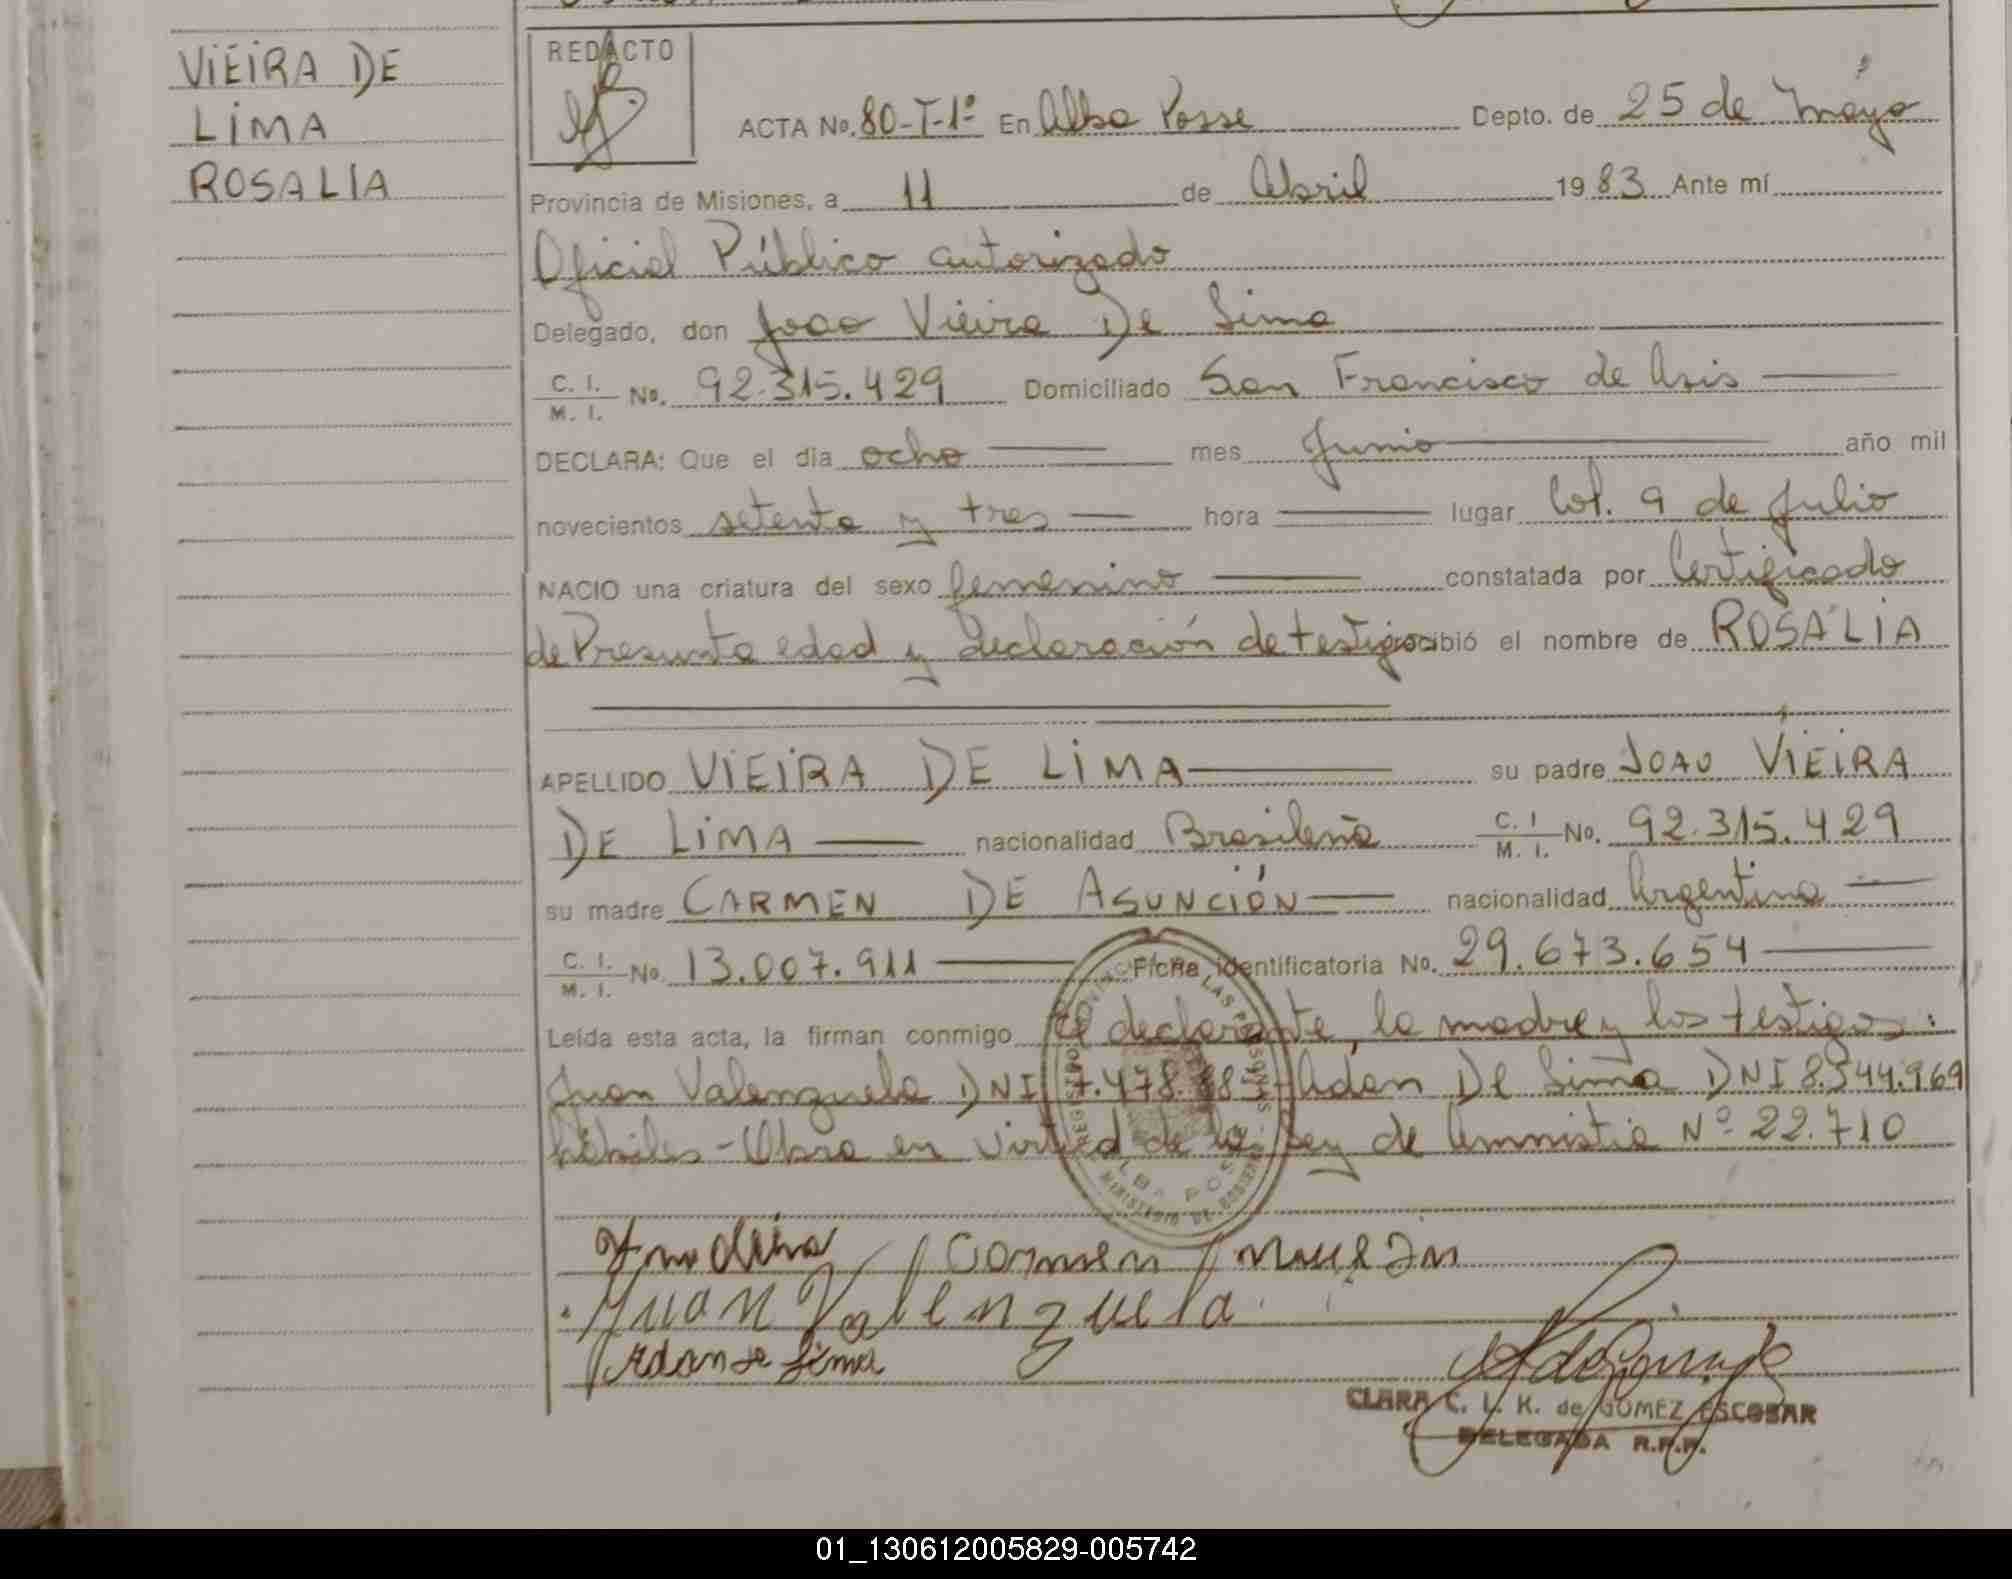 VIEIRA DE
LIMA
ROSALIA
REDACTO
ACTA No. 80-T-1º En Alba Posse Depto. de 25 de Mayo
Provincia de Misiones, a 11 de Abril 1983 Ante mí
Oficial Público autorizado
Delegado, don Joao Vieira De Lima
C. I. M. I. No. 92.315.429 Domiciliado San Francisco de Asis
DECLARA: Que el día ocho mes Junio año mil
novecientos setenta y tres hora lugar Col. 9 de Julio
NACIO una criatura del sexo femenino constatada por Certificado
de Presunta edad y declaración de testigos recibió el nombre de ROSALIA
APELLIDO VIEIRA DE LIMA su padre JOAO VIEIRA
DE LIMA nacionalidad Brasileña C. I M. I. No. 92.315.429
su madre CARMEN DE ASUNCIÓN nacionalidad Argentina
C. I. M. I. No. 13.007.911 Ficha identificatoria No. 29.673.654
Leída esta acta, la firman conmigo el declarante, la madre y los testigos:
Juan Valenzuela DNI 7.478. Adan De Lima DNI 8.544.969
hábiles - Obra en virtud de la Ley de Amnistia Nº 22.710
Carmen
Juan Valenzuela
Adan de Lima
CLARA C. L. K. de GOMEZ ESCOBAR
DELEGADA R.P.P.
01_130612005829-005742